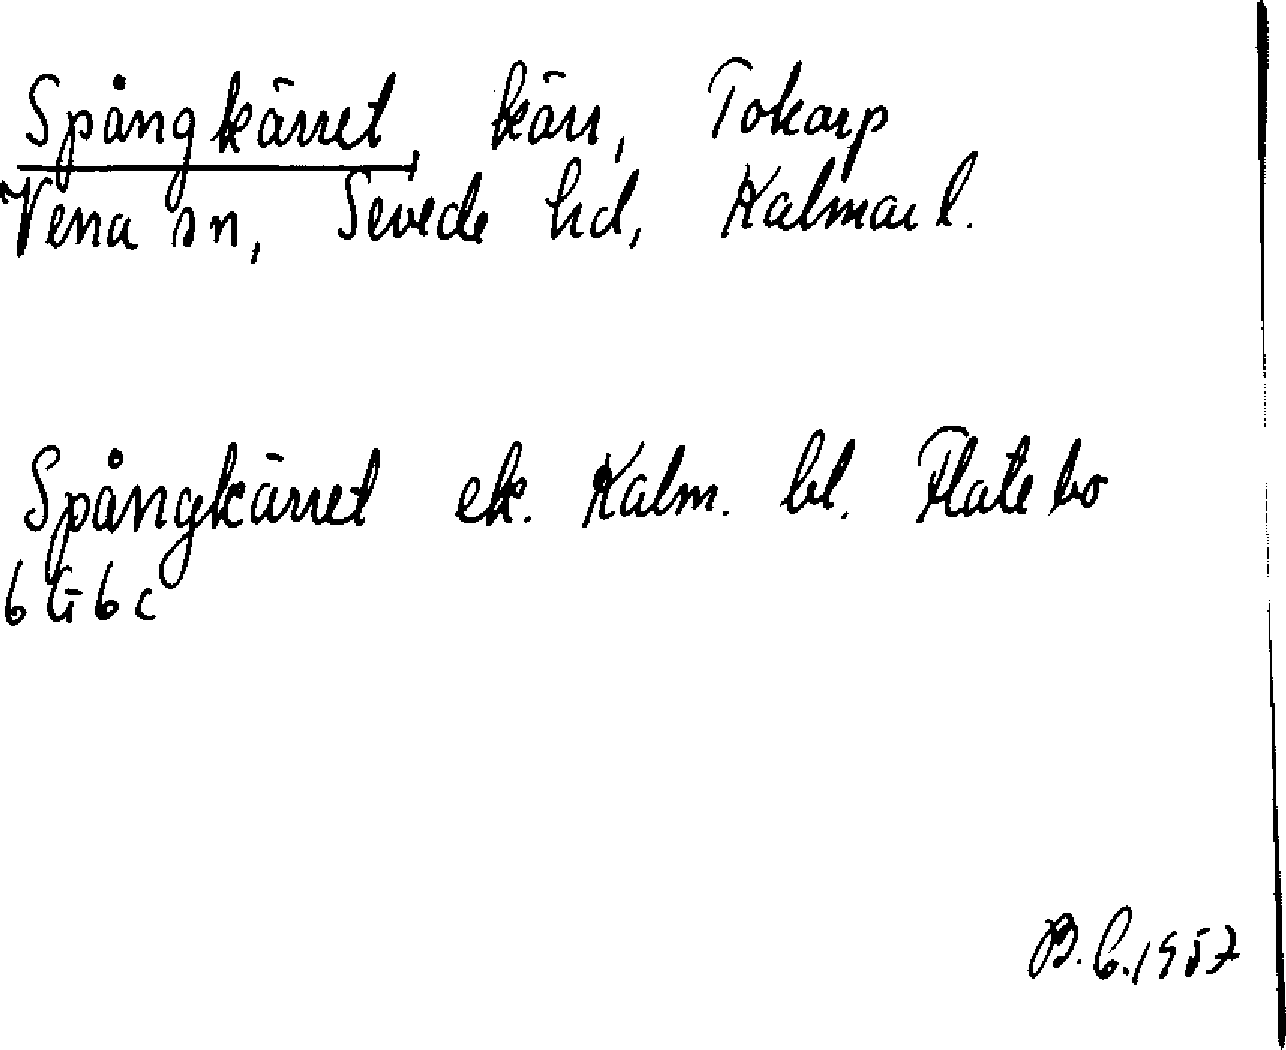 Spångkärret, kärr, Tokarp
Vena sn, Sevede hd, Kalmar l.
Spångkärret ek. Kalm. bl. Flatebo
6 G 6 c
B.G. 1957